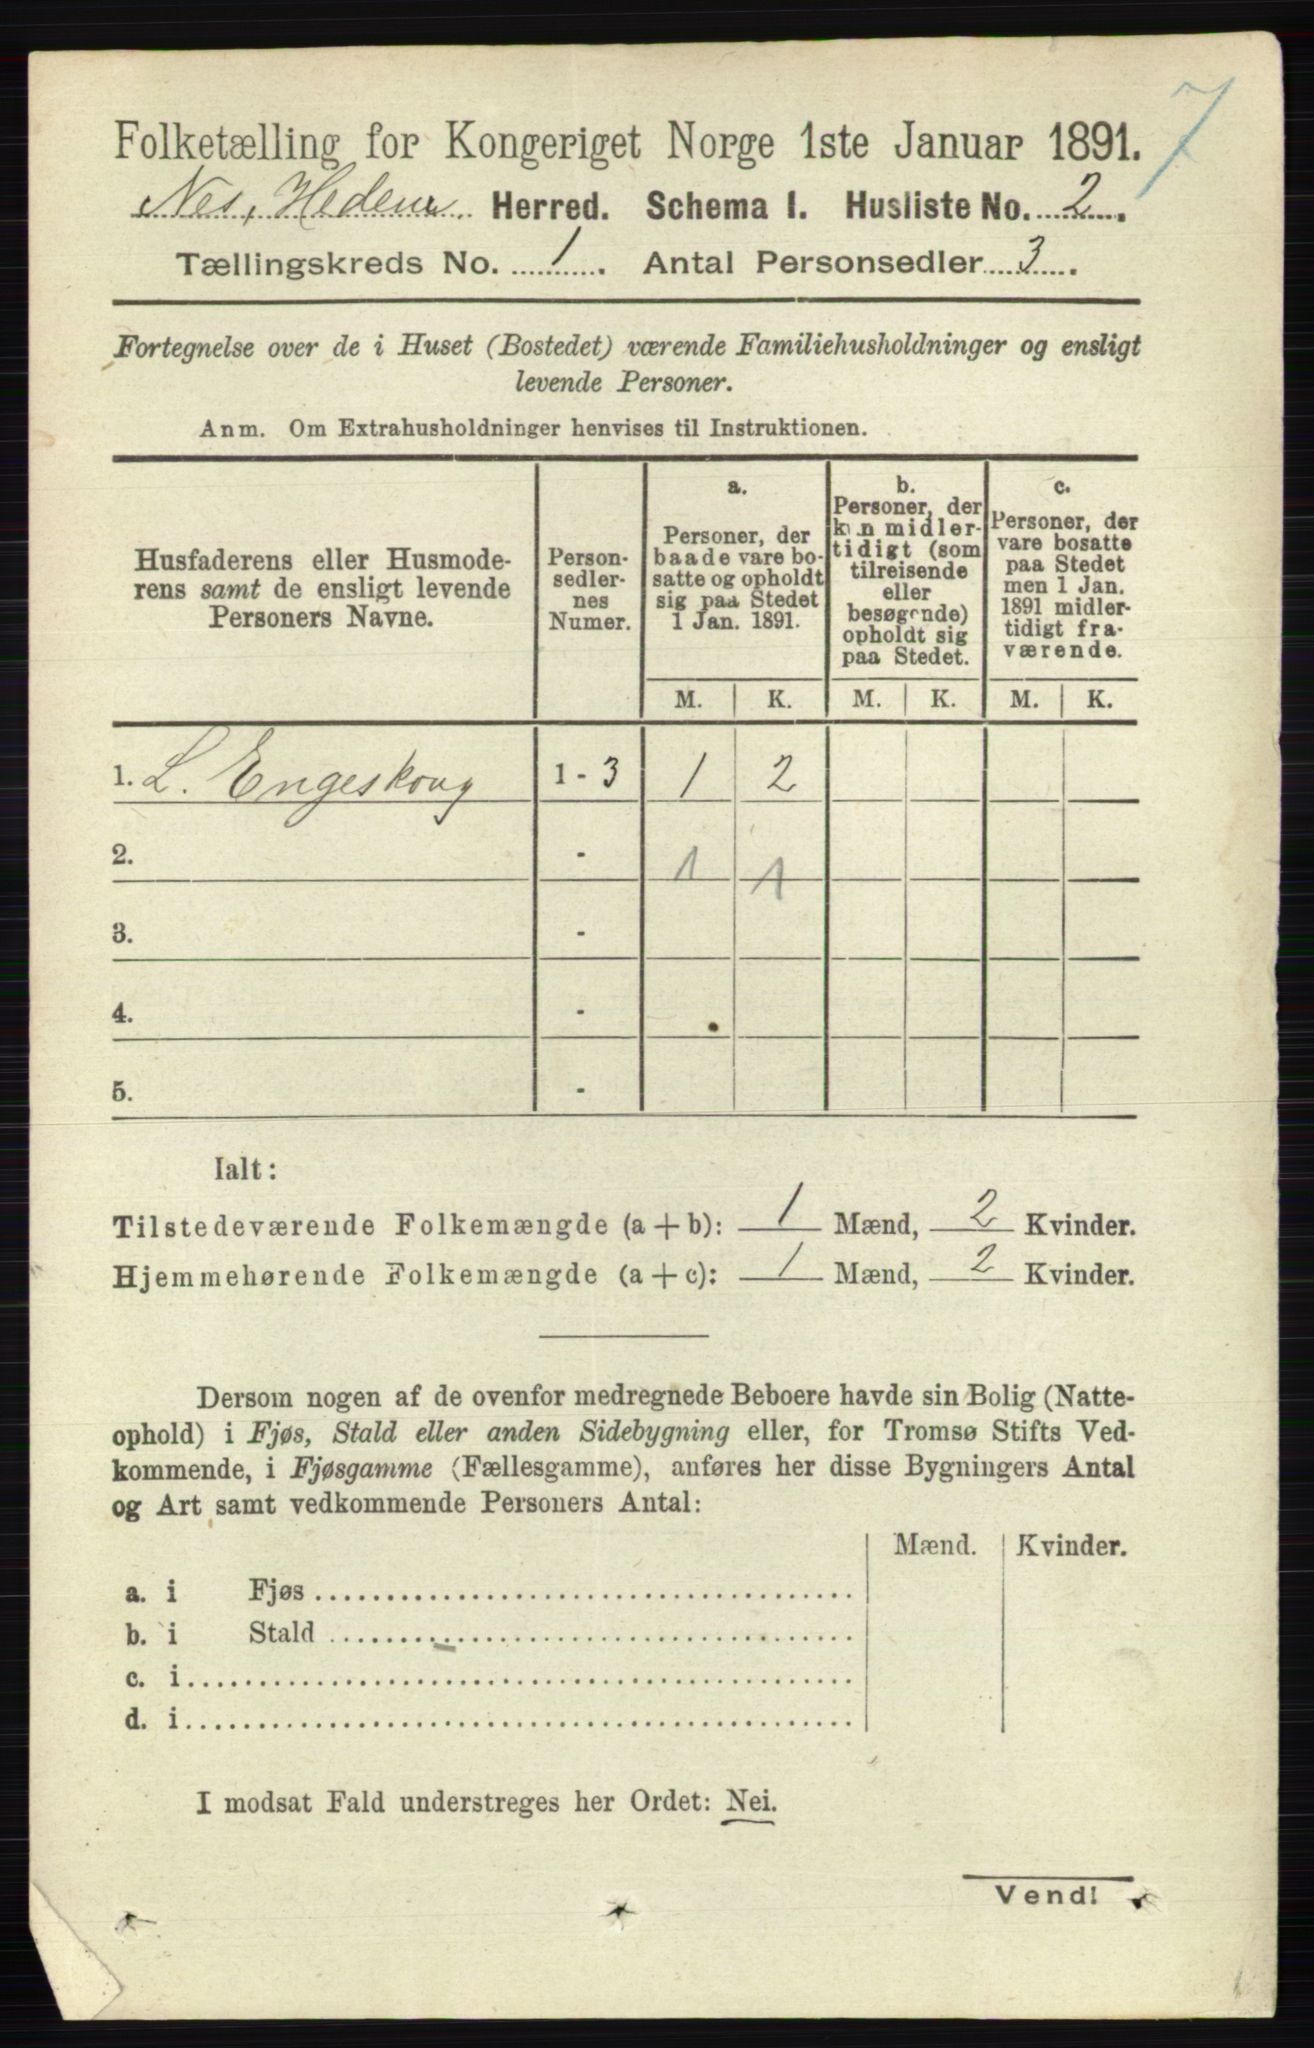 7
Folketælling for Kongeriget Norge 1ste Januar 1891.
Nes, Hedem Herred. Schema I. Husliste No. 2.
Tællingskreds No. 1. Antal Personsedler 3.
Fortegnelse over de i Huset (Bostedet) værende Familiehusholdninger og ensligt
levende Personer.
Anm. Om Extrahusholdninger henvises til Instruktionen.
Husfaderens eller Husmode-
rens samt de ensligt levende
Personers Navne.
Person-
sedler-
nes
Numer.
a.
Personer, der
baade vare bo-
satte og opholdt
sig paa Stedet
1 Jan. 1891.
b.
Personer, der
kun midler-
tidigt (som
tilreisende
eller
besøgende)
opholdt sig
paa Stedet.
c.
Personer, der
vare bosatte
paa Stedet
men 1 Jan.
1891 midler-
tidigt fra-
værende.
M. K. M. K. M. K.
1. L. Engeskoug 1 - 3 1 2
2. - 1 1
3. -
4. -
5. -
Ialt:
Tilstedeværende Folkemængde (a + b): 1 Mænd, 2 Kvinder.
Hjemmehørende Folkemængde (a + c): 1 Mænd, 2 Kvinder.
Dersom nogen af de ovenfor medregnede Beboere havde sin Bolig (Natte-
ophold) i Fjøs, Stald eller anden Sidebygning eller, for Tromsø Stifts Ved-
kommende, i Fjøsgamme (Fællesgamme), anføres her disse Bygningers Antal
og Art samt vedkommende Personers Antal:
Mænd. Kvinder.
a. i Fjøs
b. i Stald
c. i
d. i
I modsat Fald understreges her Ordet: Nei.
Vend!